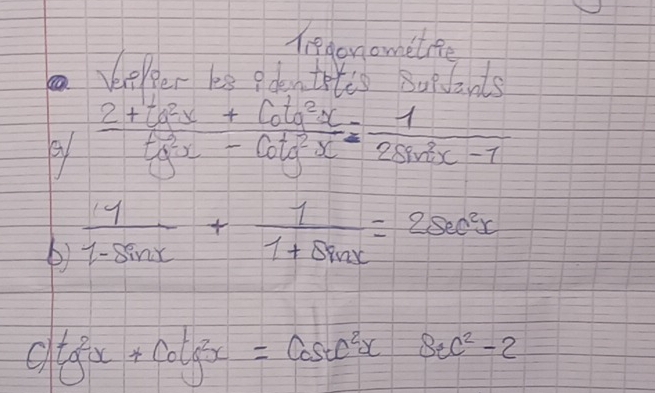 Trigonométrie
Vérifier les identités suivants
a) (2 + tg²x + Cotg²x) / (tg²x - Cotg²x) = 1 / (2Sin²x - 1)
b) 1 / (1 - Sinx) + 1 / (1 + Sinx) = 2Sec²x
c) tg²x + Cotg²x = Cosec²x Sec² - 2